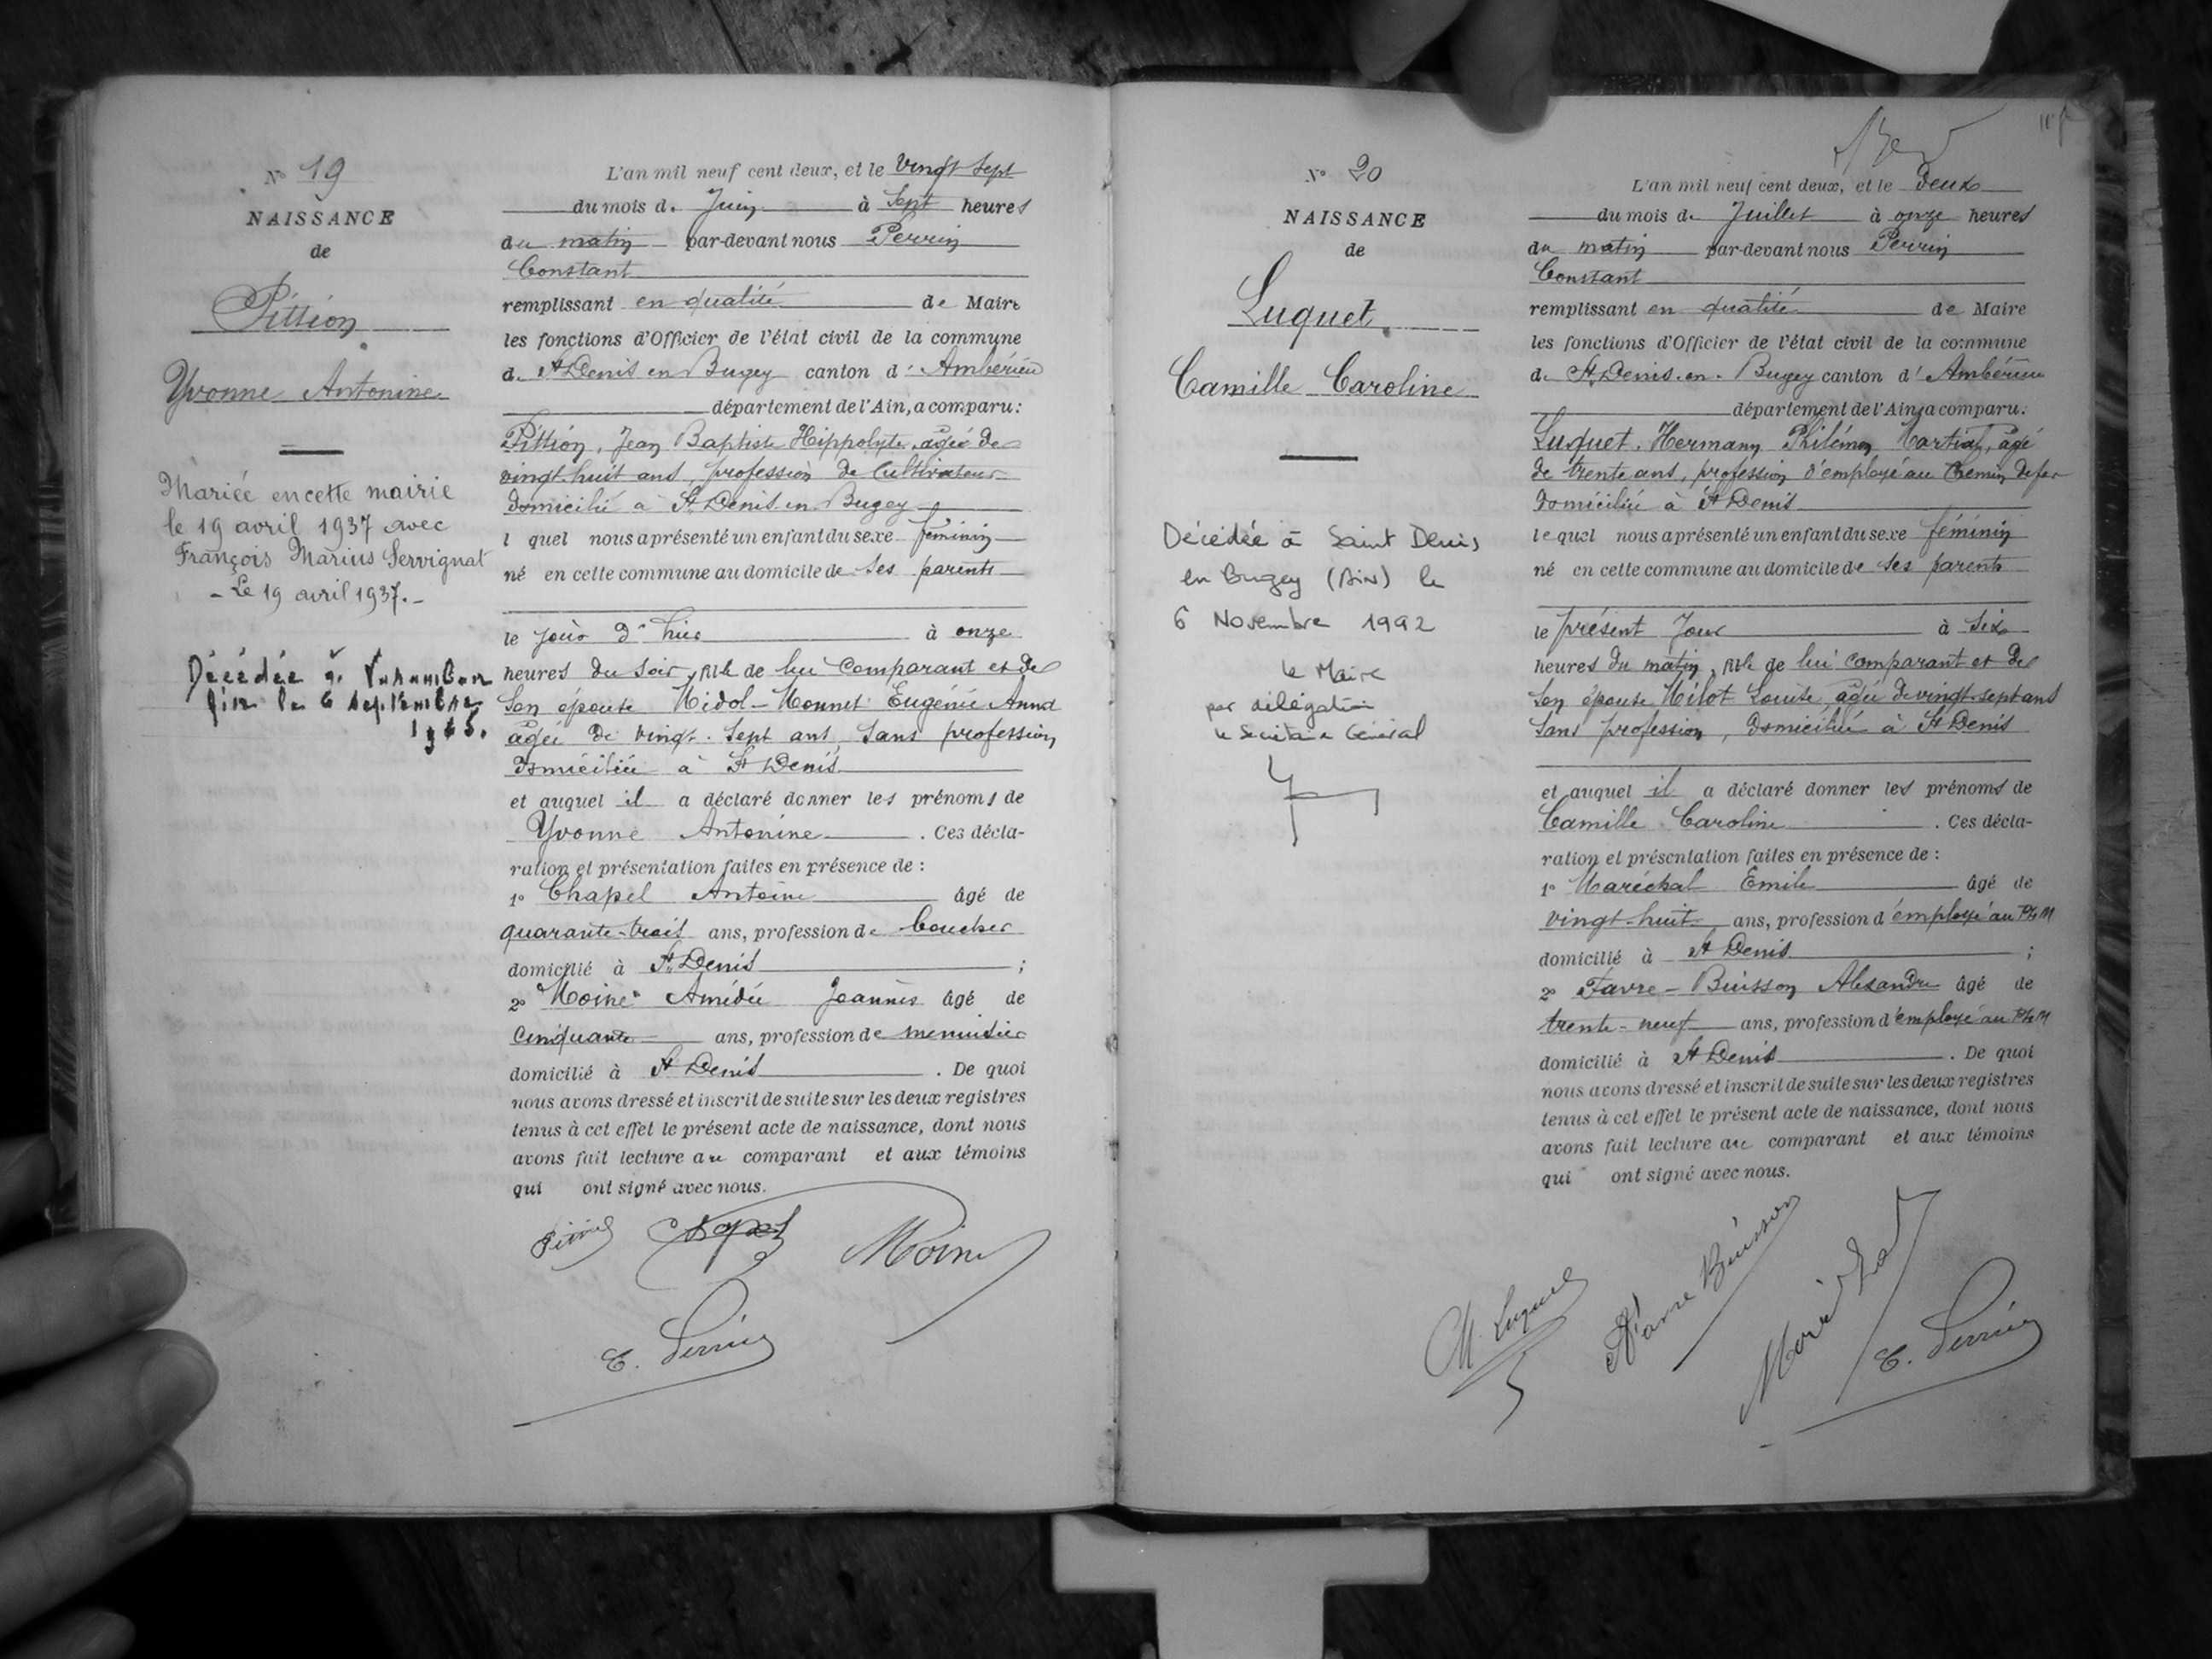 N° 19
NAISSANCE
de
Pittion
Yvonne Antonine
Mariée en cette mairie
le 19 avril 1937 avec
François Marius Servignat
- Le 19 avril 1937.-
Décédée à Varambon
Ain le 6 septembre
L'an mil neuf cent deux, et le vingt sept
du mois de Juin à sept heures
du matin par-devant nous Perrin
Constant
remplissant en qualité de Maire
les fonctions d'Officier de l'état civil de la commune
de St Denis en Bugey canton d'Ambérieu
département de l'Ain, a comparu:
Pittion, Jean Baptiste Hippolyte, âgé de
vingt huit ans, profession de Cultivateur
domicilié à St Denis en Bugey
l quel nous a présenté un enfant du sexe féminin
né en cette commune au domicile de ses parents
le jour d'hier à onze
heures du soir, fille de lui comparant et de
son épouse Midol-Monnet Eugénie Anna
agée de vingt-sept ans, sans profession,
domiciliée à St Denis
et auquel il a déclaré donner les prénoms de
Yvonne Antonine. Ces décla-
ration et présentation faites en présence de :
1° Chapel Antoine âgé de
quarante-trois ans, profession de boucher
domicilié à St Denis ;
2° Moine Amédée Joannès âgé de
cinquante ans, profession de menuisier
domicilié à St Denis. De quoi
nous avons dressé et inscrit de suite sur les deux registres
tenus à cet effet le présent acte de naissance, dont nous
avons fait lecture au comparant et aux témoins
qui ont signé avec nous.
Moine
C. Perrin
N° 20
NAISSANCE
de
Luquet
Camille Caroline
Décédée à Saint Denis
en Bugey (Ain) le
6 Novembre 1992
Le Maire
par délégation
le Secrétaire Général
L'an mil neuf cent deux, et le deux
du mois de Juillet à onze heures
du matin par-devant nous Perrin
Constant
remplissant en qualité de Maire
les fonctions d'Officier de l'état civil de la commune
de St Denis-en-Bugey canton d'Ambérieu
département de l'Ain, a comparu:
Luquet, Hermann Philémon Martial, âgé
de trente ans, profession d'employé au Chemin de fer
domicilié à St Denis
lequel nous a présenté un enfant du sexe féminin
né en cette commune au domicile de ses parents
le présent jour à six
heures du matin, fille de lui comparant et de
son épouse Milot Louise, agée de vingt-sept ans
sans profession, domiciliée à St Denis
et auquel il a déclaré donner les prénoms de
Camille Caroline. Ces décla-
ration et présentation faites en présence de :
1° Maréchal Emile âgé de
vingt-huit ans, profession d'employé au PLM
domicilié à St Denis ;
2° Favre-Buisson Alexandre âgé de
trente-neuf ans, profession d'employé au PLM
domicilié à St Denis. De quoi
nous avons dressé et inscrit de suite sur les deux registres
tenus à cet effet le présent acte de naissance, dont nous
avons fait lecture au comparant et aux témoins
qui ont signé avec nous.
M. Luquet
Favre Buisson
C. Perrin